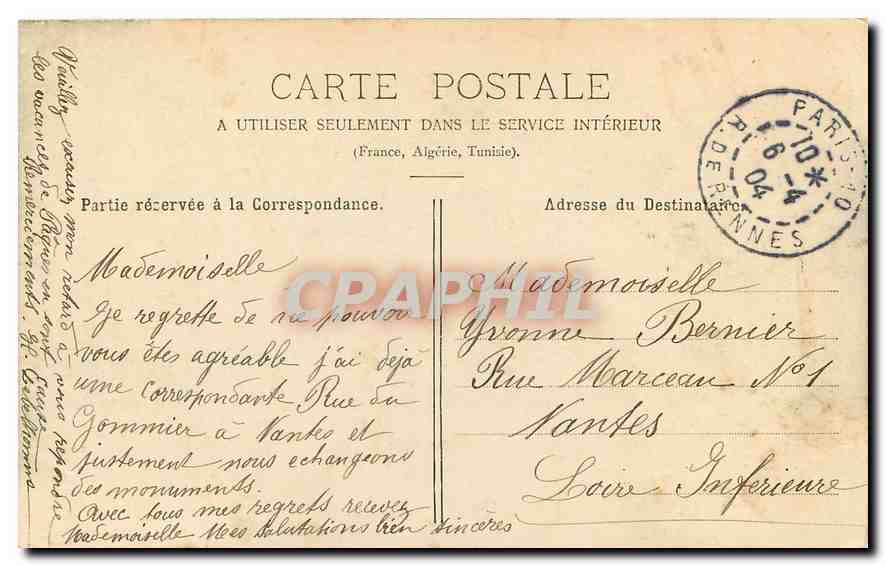 CARTE POSTALE
A UTILISER SEULEMENT DANS LE SERVICE INTÉRIEUR
(France, Algérie, Tunisie).
Partie réservée à la Correspondance.
Adresse du Destinataire
PARIS-10
R. DE RENNES
10 *
6 - 4
04
Mademoiselle
Je regrette de ne pouvoir
vous êtes agréable j'ai dejà
une correspondante Rue du
Gommier à Nantes et
justement nous echangeons
des monuments.
Avec tous mes regrets recevez
Mademoiselle Mes Salutations bien sincères
Veuillez excuser mon retard à vous repondre
les vacances de Pâques en sont cause
Remerciements.
Mademoiselle
Yvonne Bernier
Rue Marceau No 1
Nantes
Loire Inferieure
CPAPHIL